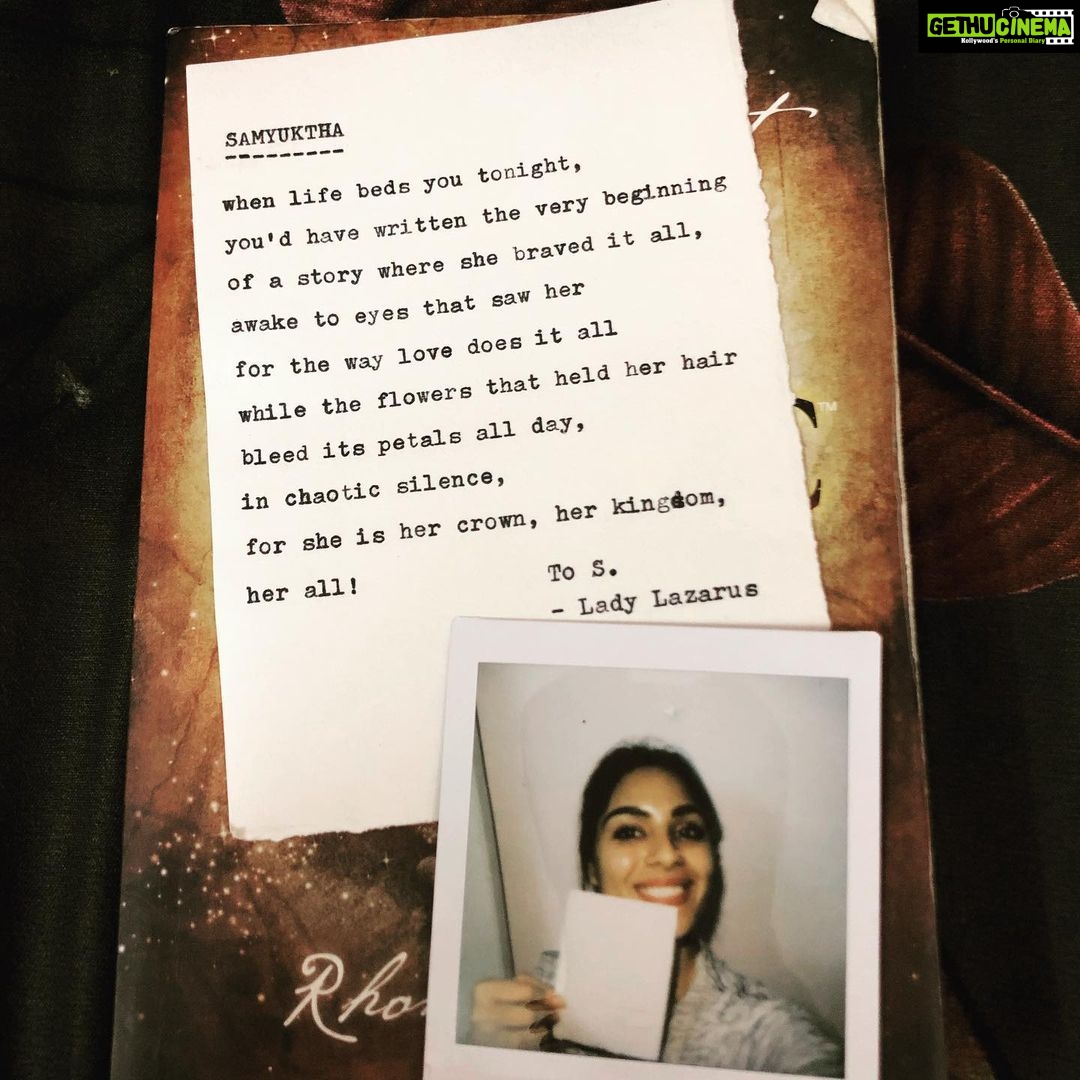 GETHUCINEMA
Kollywood's Personal Diary
SAMYUKTHA
when life beds you tonight,
you'd have written the very beginning
of a story where she braved it all,
awake to eyes that saw her
for the way love does it all
while the flowers that held her hair
bleed its petals all day,
in chaotic silence,
for she is her crown, her kingdom,
her all!
To S.
- Lady Lazarus
TM
Rho